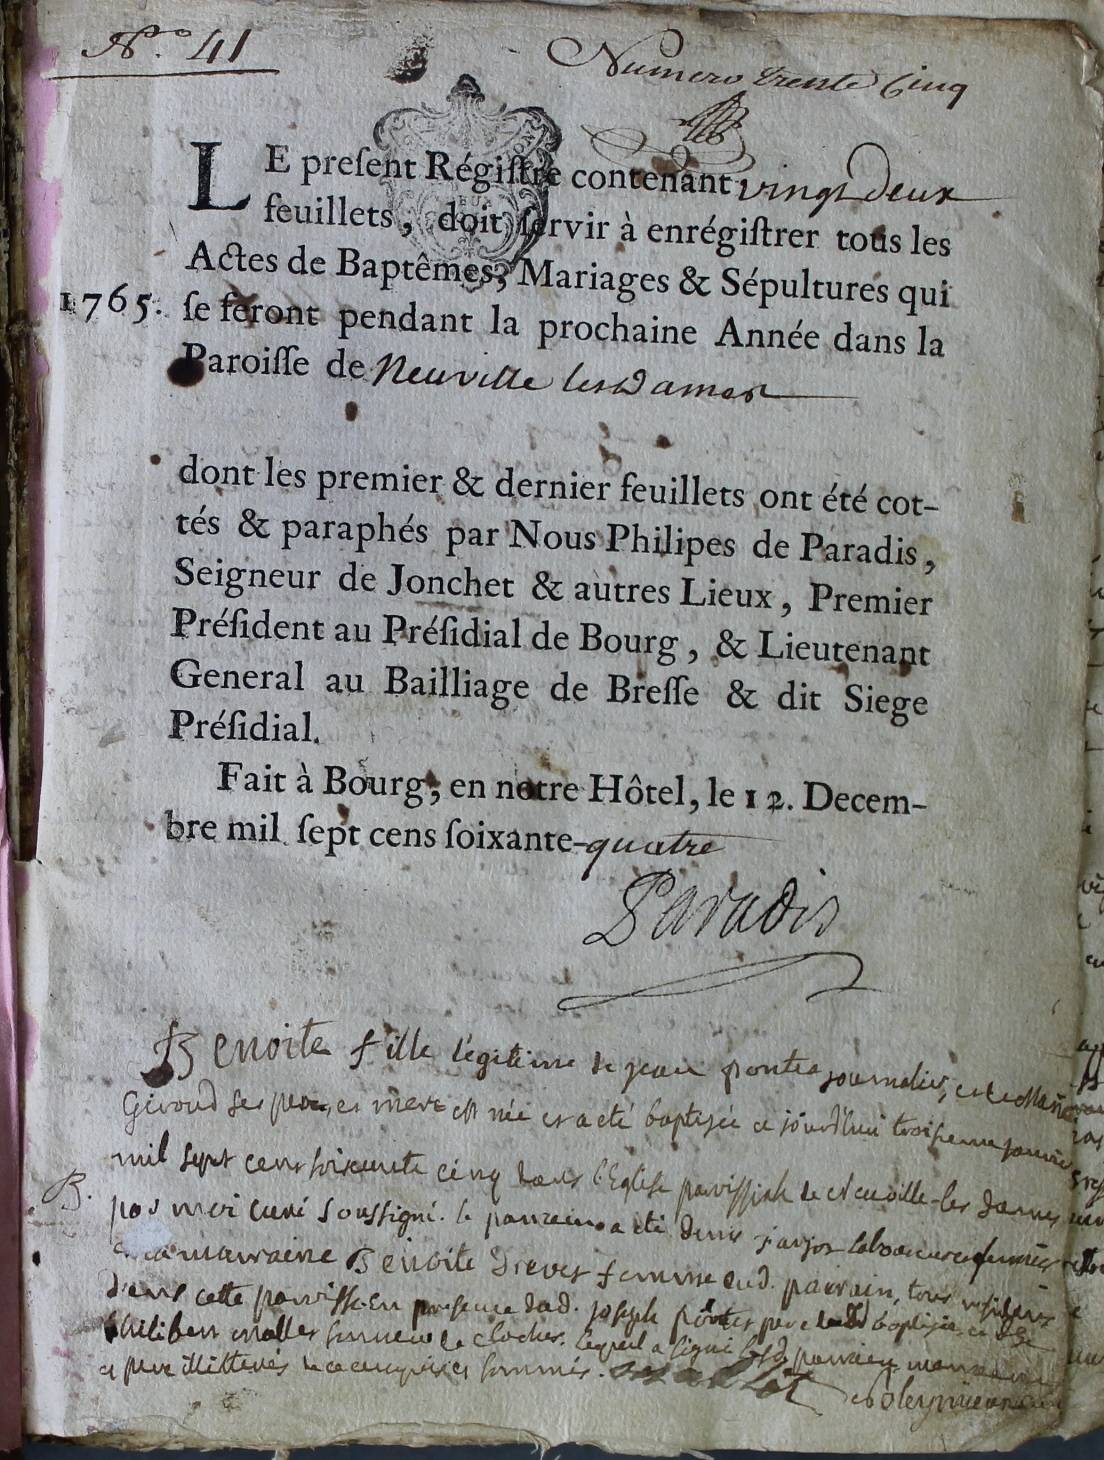 N.° 41
Numero trente Cinq
LE preſent Régiſtre contenant vingt deux
feuillets, doit ſervir à enrégiſtrer tous les
Actes de Baptêmes, Mariages & Sépultures qui
1765. ſe feront pendant la prochaine Année dans la
Paroiſſe de Neuville les Dames
dont les premier & dernier feuillets ont été cot-
tés & paraphés par Nous Philipes de Paradis,
Seigneur de Jonchet & autres Lieux, Premier
Préſident au Préſidial de Bourg, & Lieutenant
General au Bailliage de Breſſe & dit Siege
Préſidial.
Fait à Bourg, en notre Hôtel, le 12. Decem-
bre mil ſept cens ſoixante-quatre
Paradis
Benoite fille légitime de jean journalier, et de
Giroud ses pere, et mere est née et a eté baptisée ce jourd'hui troisieme janvier
mil sept cens soixante cinq dans l'Eglise parroissiale de Neuville-les dames
B.
par moi curé soussigné. le parrein a eté denis
la marraine Benoite femme dud. parrain, tous residens
dans cette parroisse en presence dud. joseph pere de baptisée
philibert sonneur de cloches. lequel a signé
et pere illitterés de ce enquis et sommés.